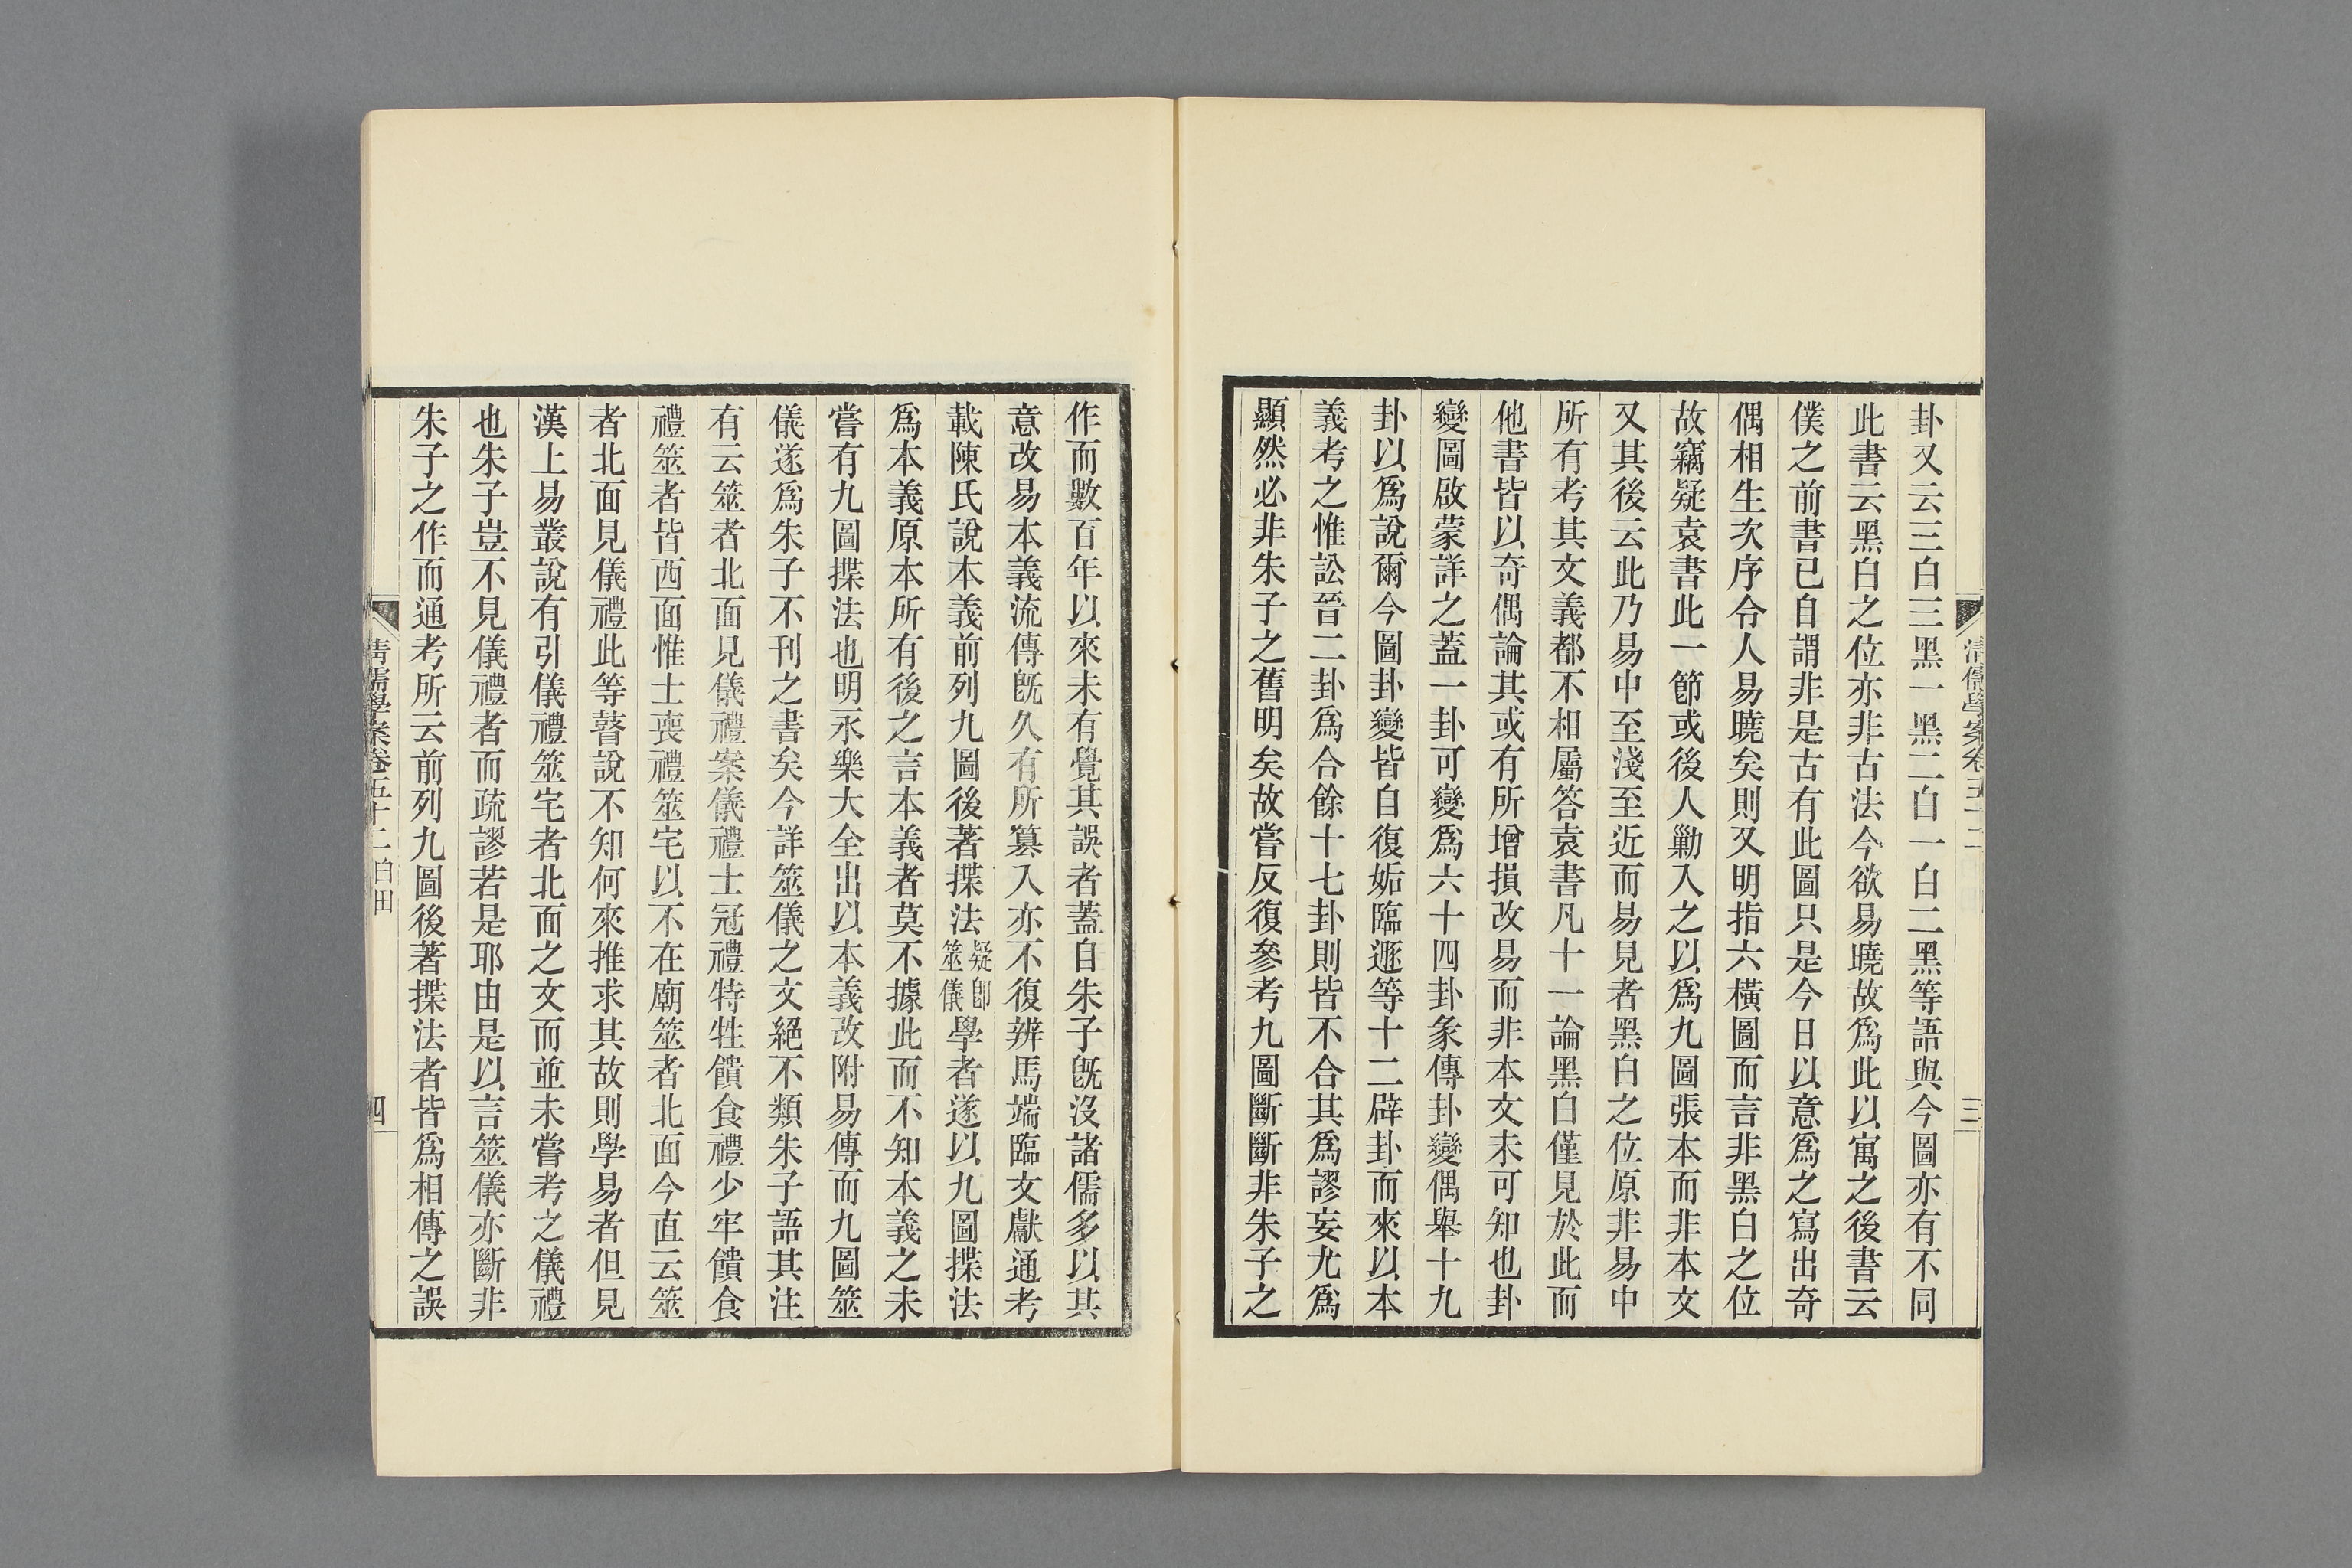 卦又云三白三黑一黑二白一白二黑等語與今圖亦有不同
此書云黑白之位亦非古法今欲易曉故爲此以寓之後書云
僕之前書已自謂非是古有此圖只是今日以意爲之寫出奇
偶相生次序令人易曉矣則又明指六橫圖而言非黑白之位
故竊疑袁書此一節或後人勦入之以爲九圖張本而非本文
又其後云此乃易中至淺至近而易見者黑白之位原非易中
所有考其文義都不相屬答袁書凡十一論黑白僅見於此而
他書皆以奇偶論其或有所增損改易而非本文未可知也卦
變圖啟蒙詳之蓋一卦可變爲六十四卦彖傳卦變偶舉十九
卦以爲說爾今圖卦變皆自復姤臨遯等十二辟卦而來以本
義考之惟訟晉二卦爲合餘十七卦則皆不合其爲謬妄尤爲
顯然必非朱子之舊明矣故嘗反復參考九圖斷斷非朱子之
清儒學案卷五十二
三
作而數百年以來未有覺其誤者蓋自朱子旣沒諸儒多以其
意改易本義流傳旣久有所篡入亦不復辨馬端臨文獻通考
載陳氏說本義前列九圖後著揲法疑卽筮儀學者遂以九圖揲法
爲本義原本所有後之言本義者莫不據此而不知本義之未
嘗有九圖揲法也明永樂大全出以本義改附易傳而九圖筮
儀遂爲朱子不刊之書矣今詳筮儀之文絕不類朱子語其注
有云筮者北面見儀禮案儀禮士冠禮特牲饋食禮少牢饋食
禮筮者皆西面惟士喪禮筮宅以不在廟筮者北面今直云筮
者北面見儀禮此等瞽說不知何來推求其故則學易者但見
漢上易叢說有引儀禮筮宅者北面之文而並未嘗考之儀禮
也朱子豈不見儀禮者而疏謬若是耶由是以言筮儀亦斷非
朱子之作而通考所云前列九圖後著揲法者皆爲相傳之誤
清儒學案卷五十二 白田
四